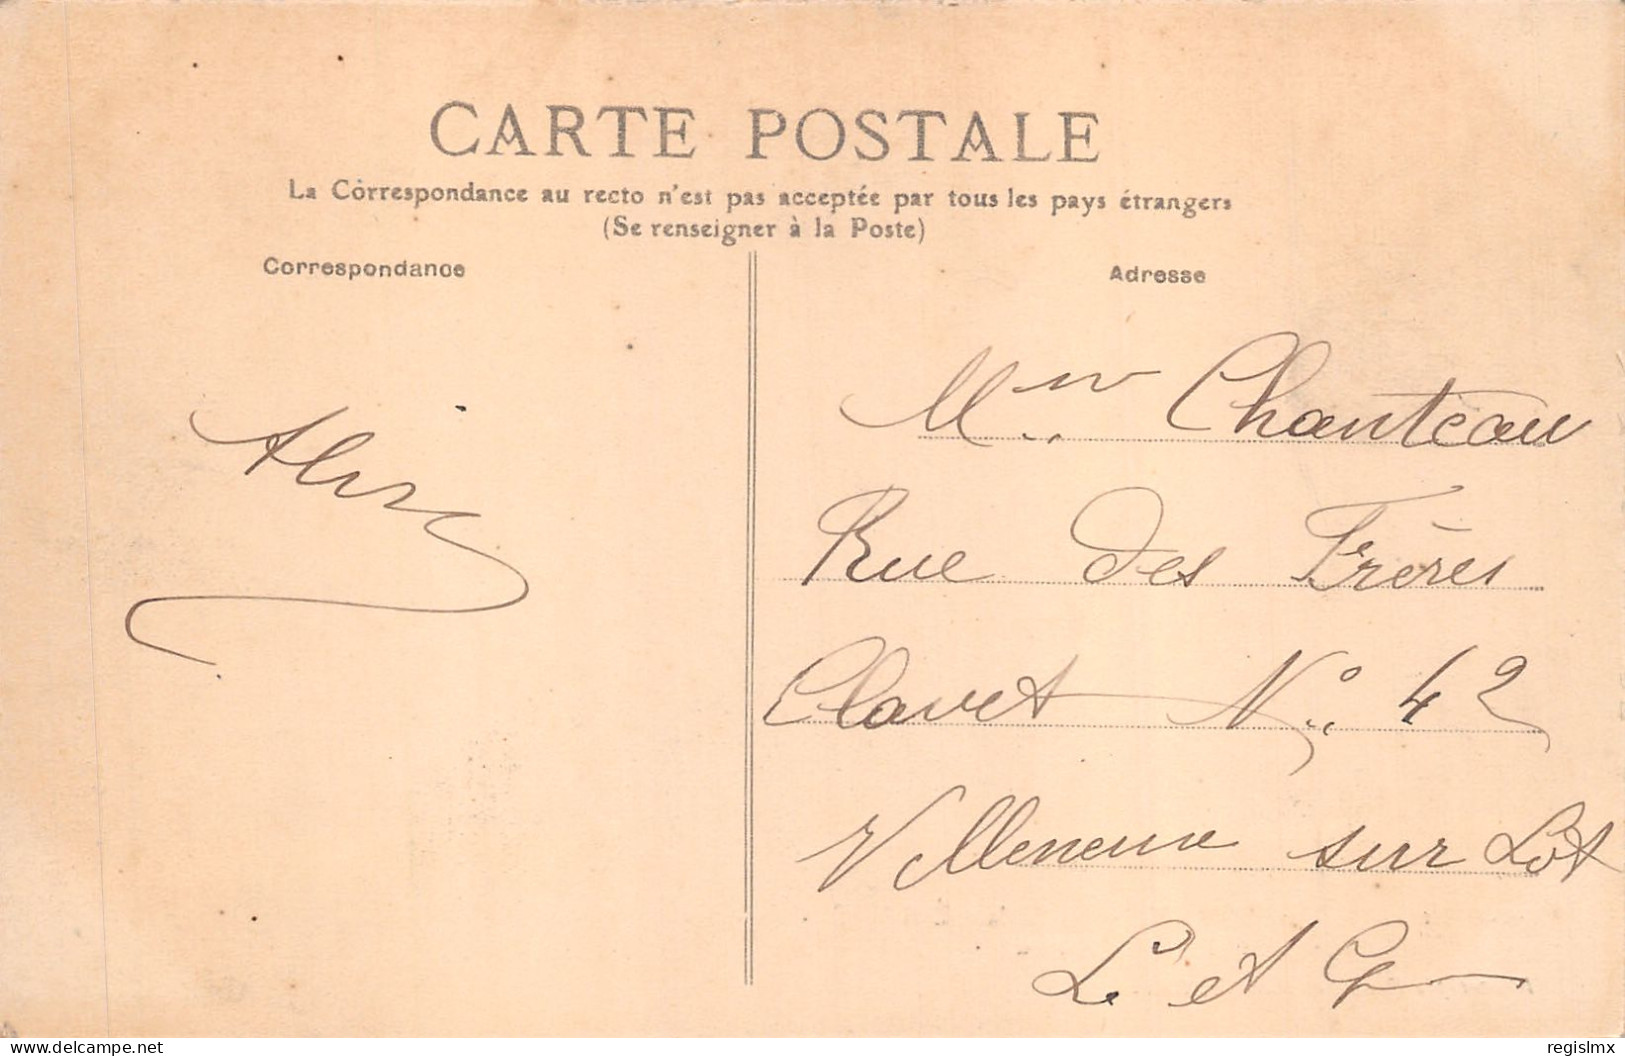 CARTE POSTALE
La Correspondance au recto n'est pas acceptée par tous les pays étrangers
(Se renseigner à la Poste)
Correspondance
Adresse
Chanteau
Rue des Frères
Clavet N° 42
Villeneuve sur Lot
L et G
www.delcampe.net
regislmx